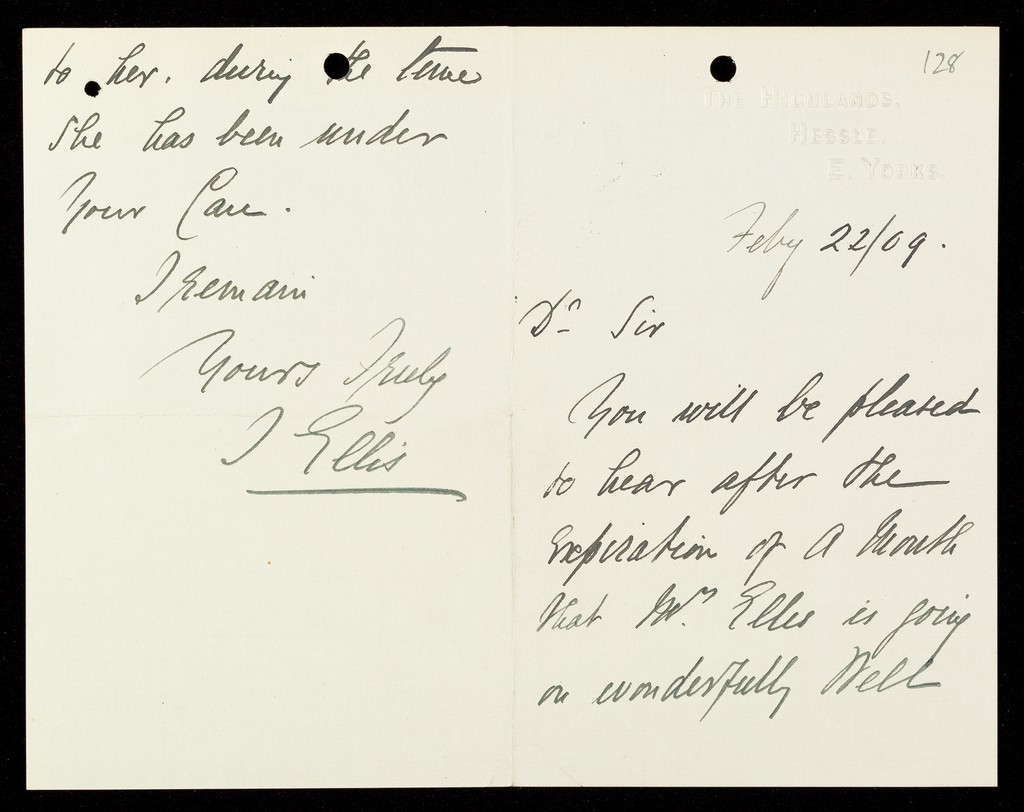 128
THE HIGHLANDS,
HESSLE,
E. YORKS.
Feby 22/09.
Dr Sir
You will be pleased
to hear after the
expiration of a Month
that Mrs. Ellis is going
on wonderfully Well
to her. during the time
She has been under
Your Care.
I remain
Yours Truly
J Ellis